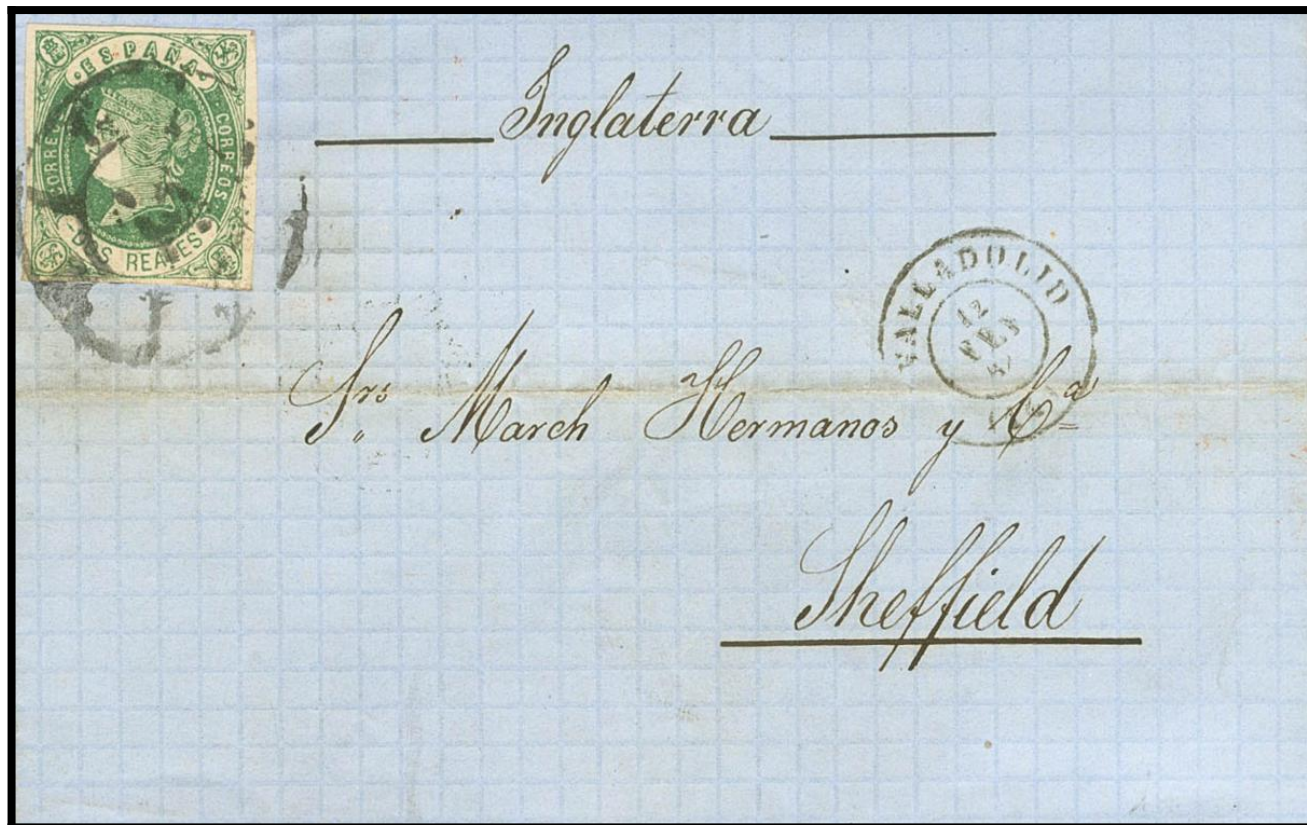 ESPAÑA
CORREOS CORREOS
DOS REALES
Inglaterra
VALLADOLID
12
FEB
Srs March Hermanos y Cª
Sheffield